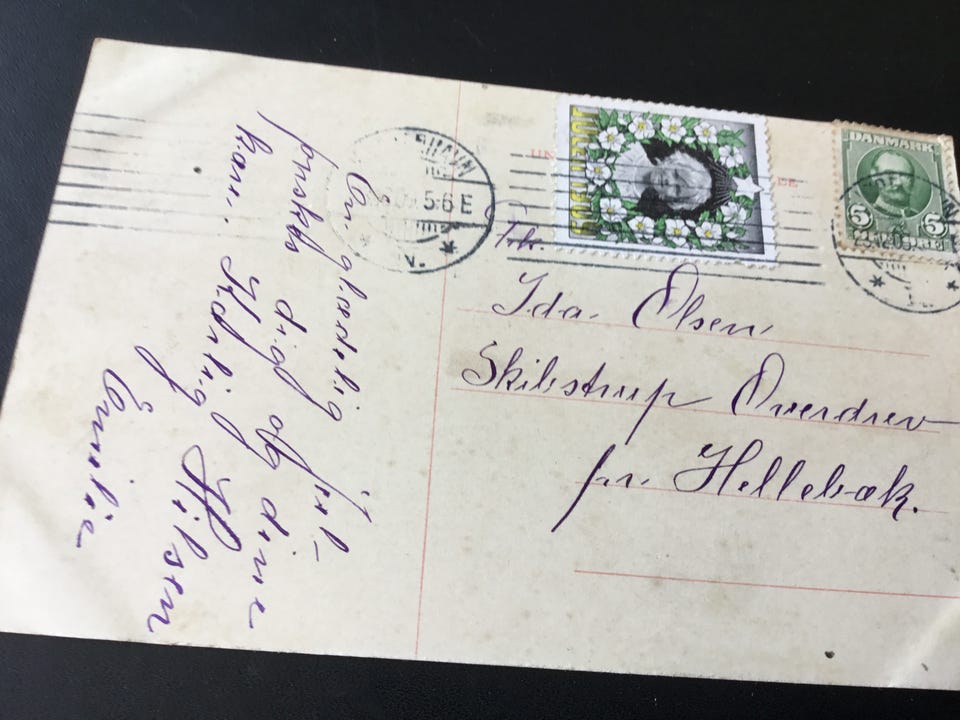 En glædelig jul
ønskes dig og dine
kære. Kærlig Hilsen
Emilie
JULEN
DANMARK
5 5
5-6 E
Frk.
Ida Olsen
Skibstrup Overdrev
pr. Hellebæk.